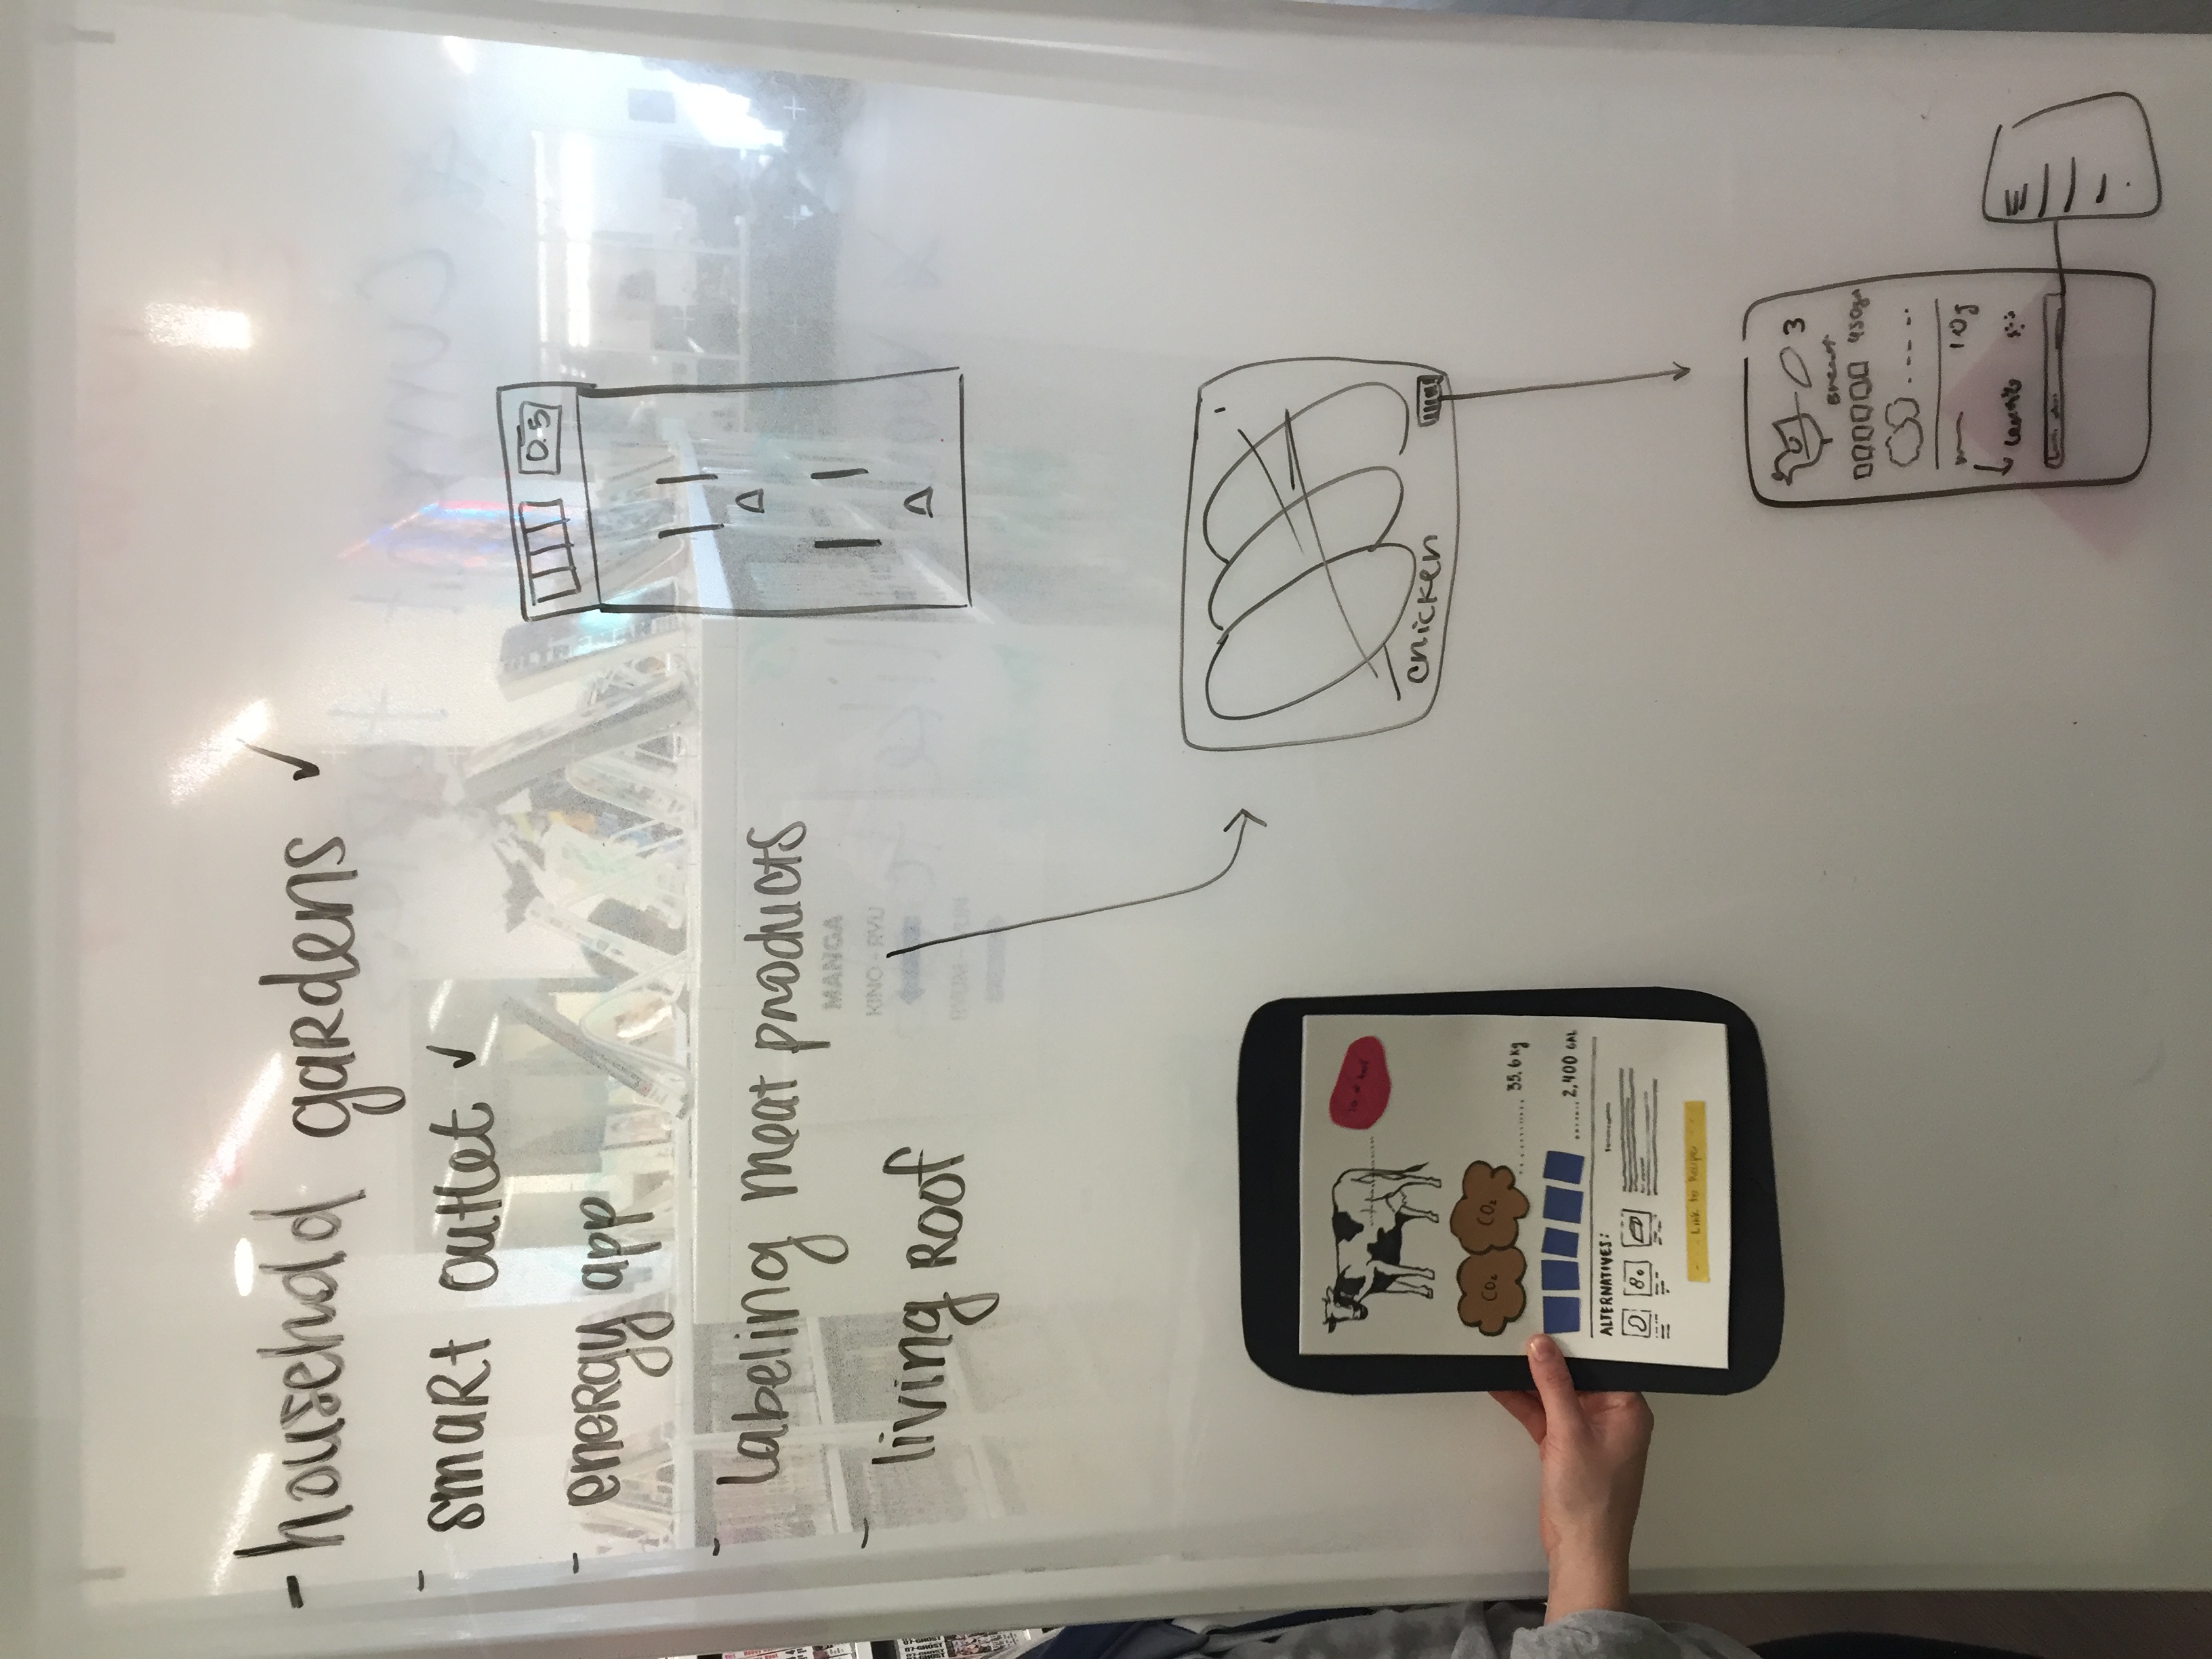 - household gardens ✓
- smart outlet ✓
- energy app
- labeling meat products
- living roof
0.5
MANGA
KINO - RYU
chicken
CO₂ CO₂
35.6 kg
2,400 GAL
ALTERNATIVES:
Link to Recipe
3
Breast
10g